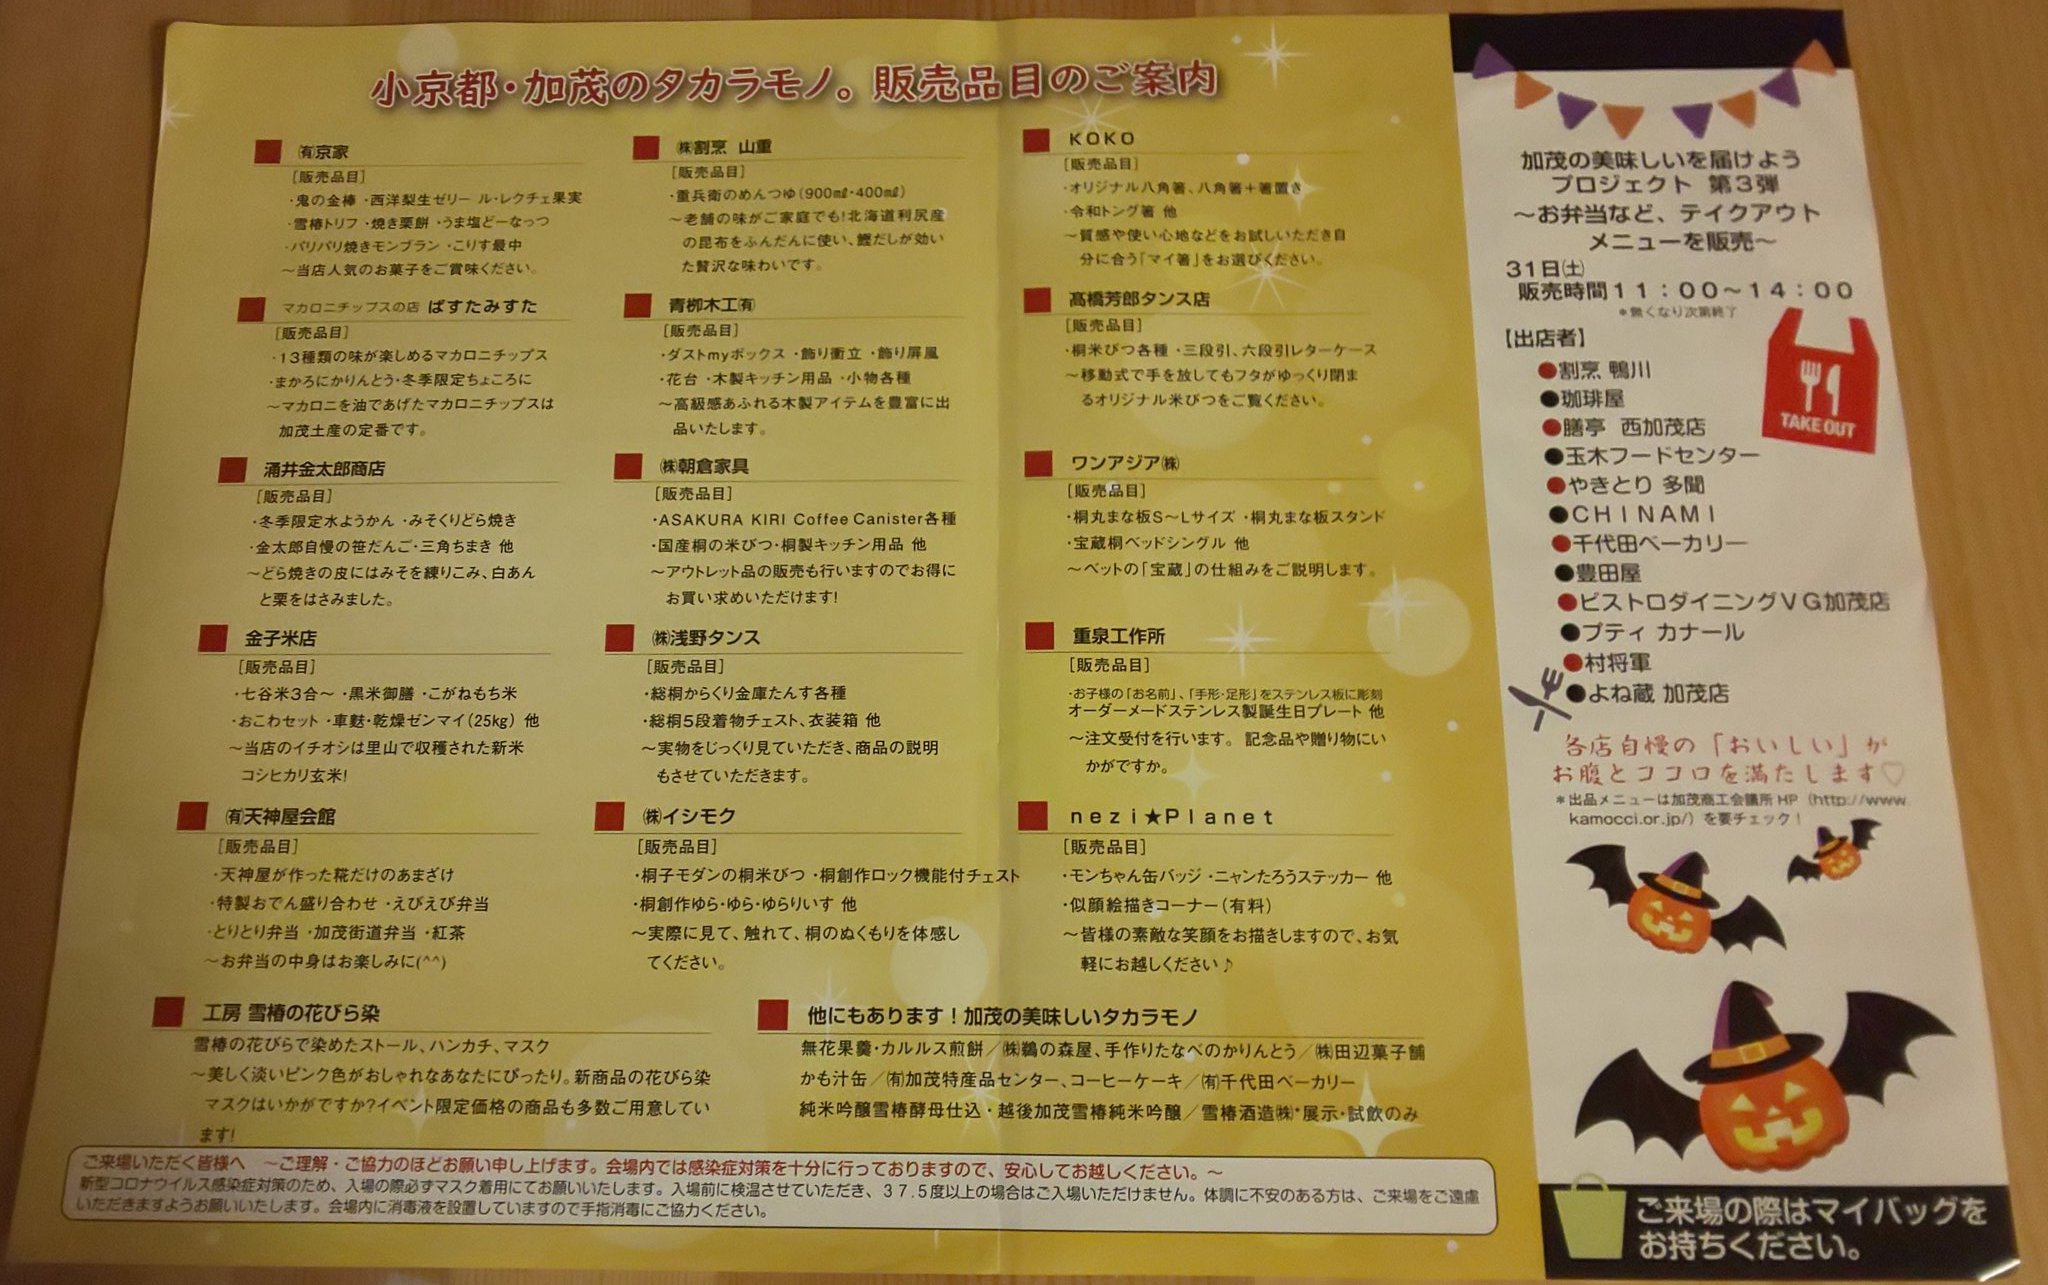 小京都・加茂のタカラモノ。販売品目のご案内
㈲京家
[販売品目]
・鬼の金棒 ・西洋梨生ゼリー ル・レクチェ果実
・雪椿トリフ ・焼き栗餅 ・うま塩どーなっつ
・パリパリ焼きモンブラン ・こりす最中
～当店人気のお菓子をご賞味ください。
マカロニチップスの店 ぱすたみすた
[販売品目]
・13種類の味が楽しめるマカロニチップス
・まかろにかりんとう・冬季限定ちょころに
～マカロニを油であげたマカロニチップスは
加茂土産の定番です。
涌井金太郎商店
[販売品目]
・冬季限定水ようかん ・みそくりどら焼き
・金太郎自慢の笹だんご・三角ちまき 他
～どら焼きの皮にはみそを練りこみ、白あん
と栗をはさみました。
金子米店
[販売品目]
・七谷米3合～ ・黒米御膳 ・こがねもち米
・おこわセット ・車麩・乾燥ゼンマイ(25kg) 他
～当店のイチオシは里山で収穫された新米
コシヒカリ玄米!
㈲天神屋会館
[販売品目]
・天神屋が作った糀だけのあまざけ
・特製おでん盛り合わせ ・えびえび弁当
・とりとり弁当 ・加茂街道弁当 ・紅茶
～お弁当の中身はお楽しみに(^^)
㈱割烹 山重
[販売品目]
・重兵衛のめんつゆ(900㎖・400㎖)
～老舗の味がご家庭でも!北海道利尻産
の昆布をふんだんに使い、鰹だしが効い
た贅沢な味わいです。
青栁木工㈲
[販売品目]
・ダストmyボックス ・飾り衝立 ・飾り屏風
・花台 ・木製キッチン用品 ・小物各種
～高級感あふれる木製アイテムを豊富に出
品いたします。
㈱朝倉家具
[販売品目]
・ASAKURA KIRI Coffee Canister各種
・国産桐の米びつ・桐製キッチン用品 他
～アウトレット品の販売も行いますのでお得に
お買い求めいただけます!
㈱浅野タンス
[販売品目]
・総桐からくり金庫たんす各種
・総桐5段着物チェスト、衣装箱 他
～実物をじっくり見ていただき、商品の説明
もさせていただきます。
㈱イシモク
[販売品目]
・桐子モダンの桐米びつ ・桐創作ロック機能付チェスト
・桐創作ゆら・ゆら・ゆらりいす 他
～実際に見て、触れて、桐のぬくもりを体感し
てください。
KOKO
[販売品目]
・オリジナル八角箸、八角箸＋箸置き
・令和トング箸 他
～質感や使い心地などをお試しいただき自
分に合う「マイ箸」をお選びください。
髙橋芳郎タンス店
[販売品目]
・桐米びつ各種 ・三段引、六段引レターケース
～移動式で手を放してもフタがゆっくり閉ま
るオリジナル米びつをご覧ください。
ワンアジア㈱
[販売品目]
・桐丸まな板S～Lサイズ ・桐丸まな板スタンド
・宝蔵桐ベッドシングル 他
～ベットの「宝蔵」の仕組みをご説明します。
重泉工作所
[販売品目]
・お子様の「お名前」、「手形・足形」をステンレス板に彫刻
オーダーメードステンレス製誕生日プレート 他
～注文受付を行います。 記念品や贈り物にい
かがですか。
nezi★Planet
[販売品目]
・モンちゃん缶バッジ ・ニャンたろうステッカー 他
・似顔絵描きコーナー(有料)
～皆様の素敵な笑顔をお描きしますので、お気
軽にお越しください♪
工房 雪椿の花びら染
雪椿の花びらで染めたストール、ハンカチ、マスク
～美しく淡いピンク色がおしゃれなあなたにぴったり。新商品の花びら染
マスクはいかがですか?イベント限定価格の商品も多数ご用意してい
ます!
他にもあります！加茂の美味しいタカラモノ
無花果羹・カルルス煎餅／㈱鵜の森屋、手作りたなべのかりんとう／㈱田辺菓子舗
かも汁缶／㈲加茂特産品センター、コーヒーケーキ／㈲千代田ベーカリー
純米吟醸雪椿酵母仕込・越後加茂雪椿純米吟醸／雪椿酒造㈱*展示・試飲のみ
ご来場いただく皆様へ ～ご理解・ご協力のほどお願い申し上げます。会場内では感染症対策を十分に行っておりますので、安心してお越しください。～
新型コロナウイルス感染症対策のため、入場の際必ずマスク着用にてお願いいたします。入場前に検温させていただき、37.5度以上の場合はご入場いただけません。体調に不安のある方は、ご来場をご遠慮
いただきますようお願いいたします。会場内に消毒液を設置していますので手指消毒にご協力ください。
加茂の美味しいを届けよう
プロジェクト 第3弾
～お弁当など、テイクアウト
メニューを販売～
31日㈯
販売時間11：00～14：00
＊無くなり次第終了
【出店者】
●割烹 鴨川
●珈琲屋
●膳亭 西加茂店
●玉木フードセンター
●やきとり 多聞
●CHINAMI
●千代田ベーカリー
●豊田屋
●ビストロダイニングVG加茂店
●プティ カナール
●村将軍
●よね蔵 加茂店
TAKE OUT
各店自慢の「おいしい」が
お腹とココロを満たします♡
＊出品メニューは加茂商工会議所HP（http://www.
kamocci.or.jp/）を要チェック！
ご来場の際はマイバッグを
お持ちください。